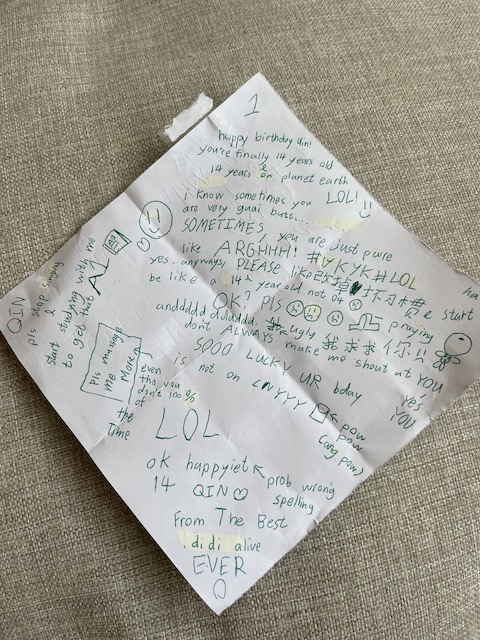 1
happy birthday Qin!
you're finally 14 years old
14 years on planet earth
LOL!
i know sometimes you
are very guai but....
SOMETIMES, you are just pure
like ARGHHH! #IYKYK#LOL
yes. anyways, PLEASE like改掉坏习惯
be like a 14 year old not 04
OK? Pls praying
andddddddddddd. #ugly 我求求你!!
don't ALWAYS make me shout at YOU
yes,
YOU
SOOO LUCKY UR bday
is not on CNYYY
pow
pow
(ang pow)
QIN
pls stop
start studying with me
to get that AL 1
Pls massage
me
even
tho you
don't 100%
of
the
time
LOL
ok happyiet
prob wrong
spelling
14 QIN
From The Best
didi alive
EVER